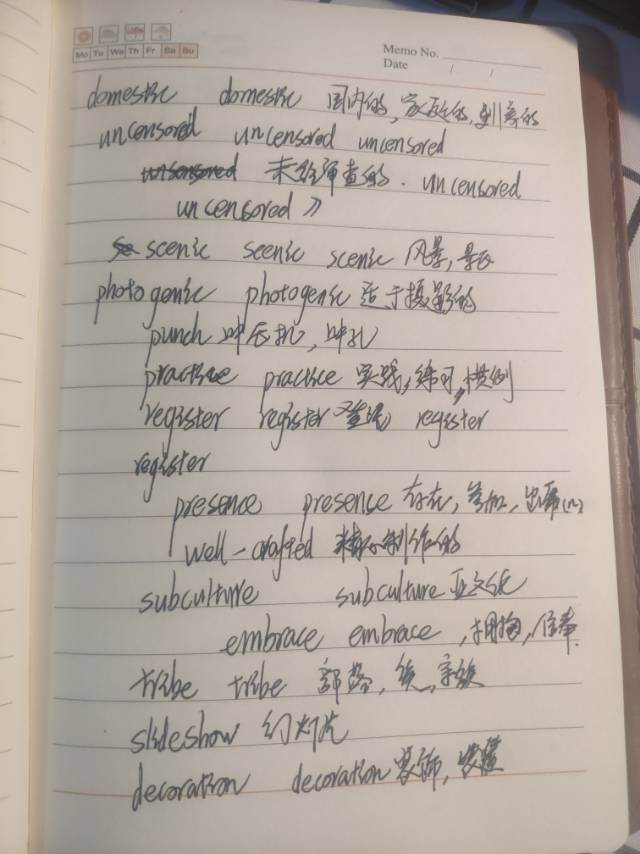 Mo Tu We Th Fr Sa Su
Memo No.
Date / /
domestic domestic 国内的, 家庭的, 驯养的
uncensored uncensored uncensored
uncensored 未经审查的. uncensored
uncensored »
scenic scenic scenic 风景, 景色
photogenic photogenic 适于摄影的
punch 冲压机, 冲孔
practice practice 实践, 练习, 惯例
register register 登记 register
register
presence presence 存在, 参加, 出席(n)
well-crafted 精心制作的
subculture subculture 亚文化
embrace embrace , 拥抱, 信奉.
tribe tribe 部落, 族, 宗族
slideshow 幻灯片
decoration decoration 装饰, 装潢